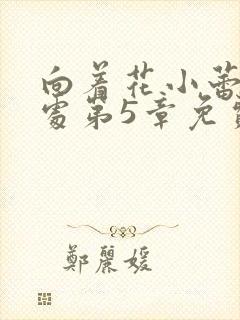 向着花小蕾
处第5章免费
鄭麗媛